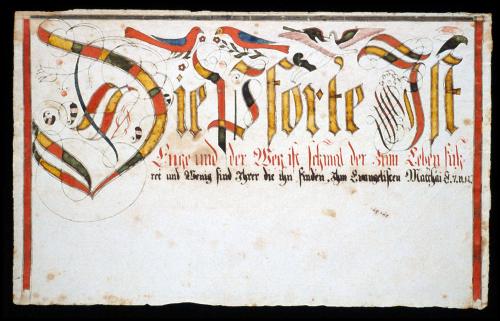 Die Pforte Ist
Enge und der Weg ist schmal der zum Leben füh-
ret und Wenig sind Ihrer die ihn finden, Ihm Evangelisten Matthäi C. 7. v.